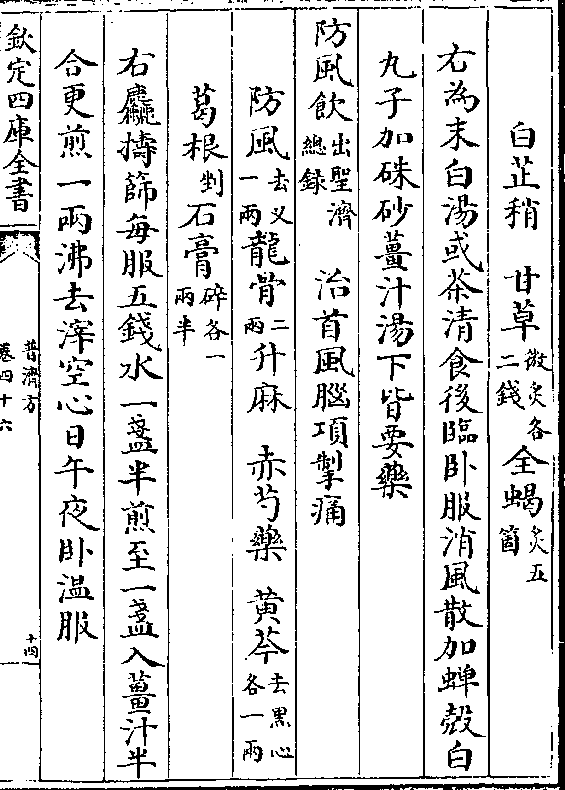 白芷稍　甘草微炙各二錢全蝎炙五箇
右為末白湯或茶清食後臨卧服消風散加蟬殻白
九子加硃砂薑汁湯下皆要藥
防風飲出聖濟總録　治首風腦項掣痛
防風去义一兩龍骨二兩升麻　赤芍藥　黄芩去黑心各一兩
葛根剉石膏碎各一兩半
右麤擣篩每服五錢水一盞半煎至一盞入薑汁半
合更煎一兩沸去滓空心日午夜卧温服
欽定四庫全書
普濟方
卷四十六
十四